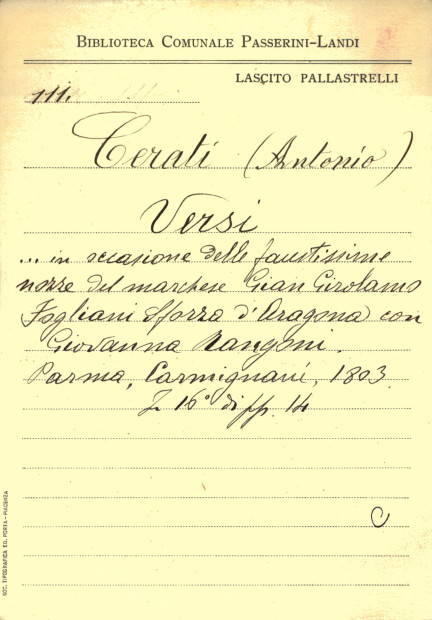 BIBLIOTECA COMUNALE PASSERINI-LANDI
LASCITO PALLASTRELLI
111.
Cerati (Antonio)
Versi
... in occasione delle faustissime
nozze del marchese Gian Girolamo
Fogliani Sforza d'Aragona con
Giovanna Rangoni.
Parma, Carmignani, 1803
In 16° di pp. 14
C
SOC. TIPOGRAFICA ED. PORTA - PIACENZA